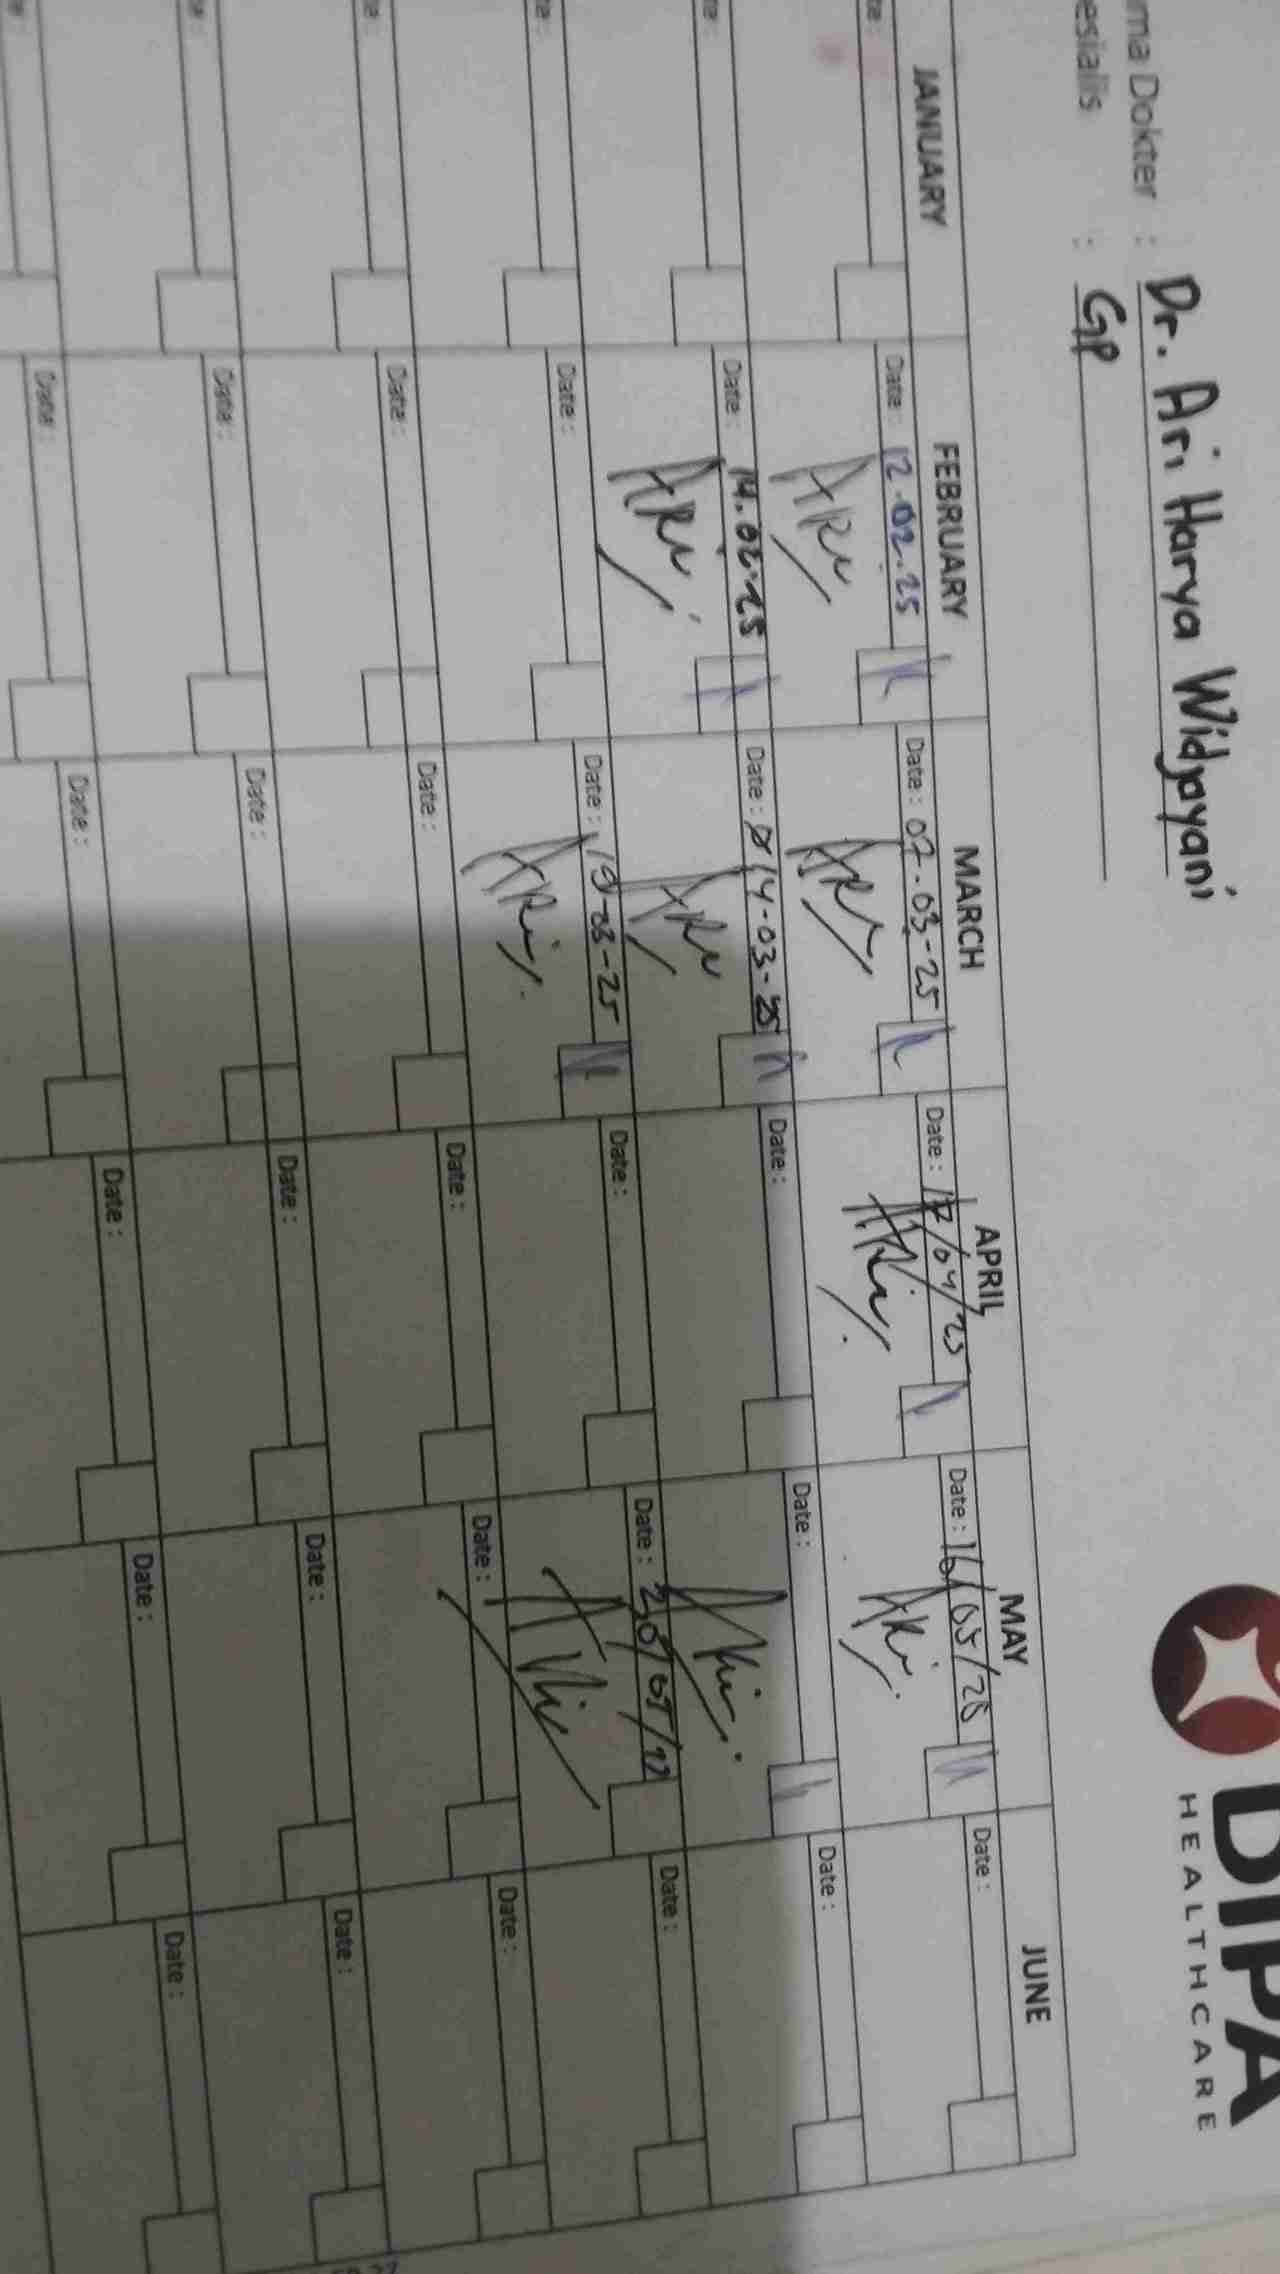 DIPA
HEALTHCARE
ma Dokter : Dr. Ari Harya Widjayani
esialis : GP
JANUARY FEBRUARY MARCH APRIL MAY JUNE
te : Date : 12.02.25 Date : 07-03-25 Date : /04/25 Date : 16/05/25 Date :
Ari Ari Ari Ari
te : Date : 14.02.25 Date : 14-03-25 Date : Date : Date :
Ari Ari Ari
te : Date : Date : 19-03-25 Date : Date : 20/05/ Date :
Ari Ari
te : Date : Date : Date : Date : Date :
te : Date : Date : Date : Date : Date :
te : Date : Date : Date : Date : Date :